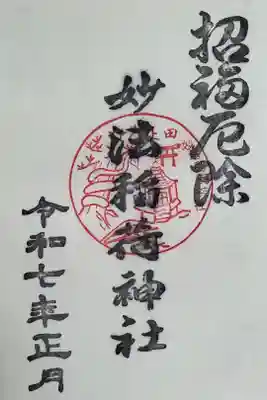 招福厄除
妙法稲荷神社
令和七年正月